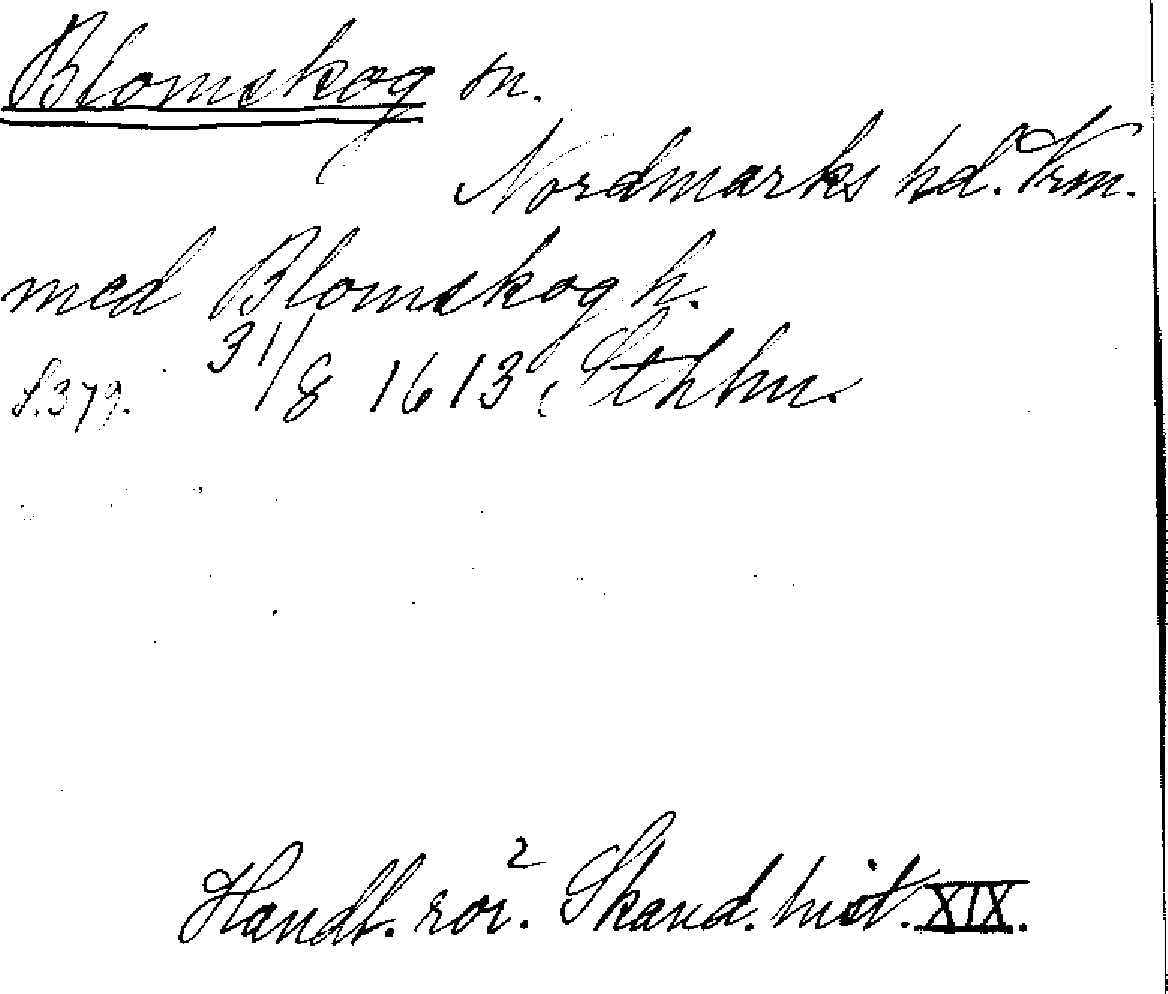 Blomskog sn.
Nordmarks hd. Vrm.
med Blomskogh.
S. 379. 31/8 1613, Sthlm.
Handl. rör. Skand. hist. XIX.